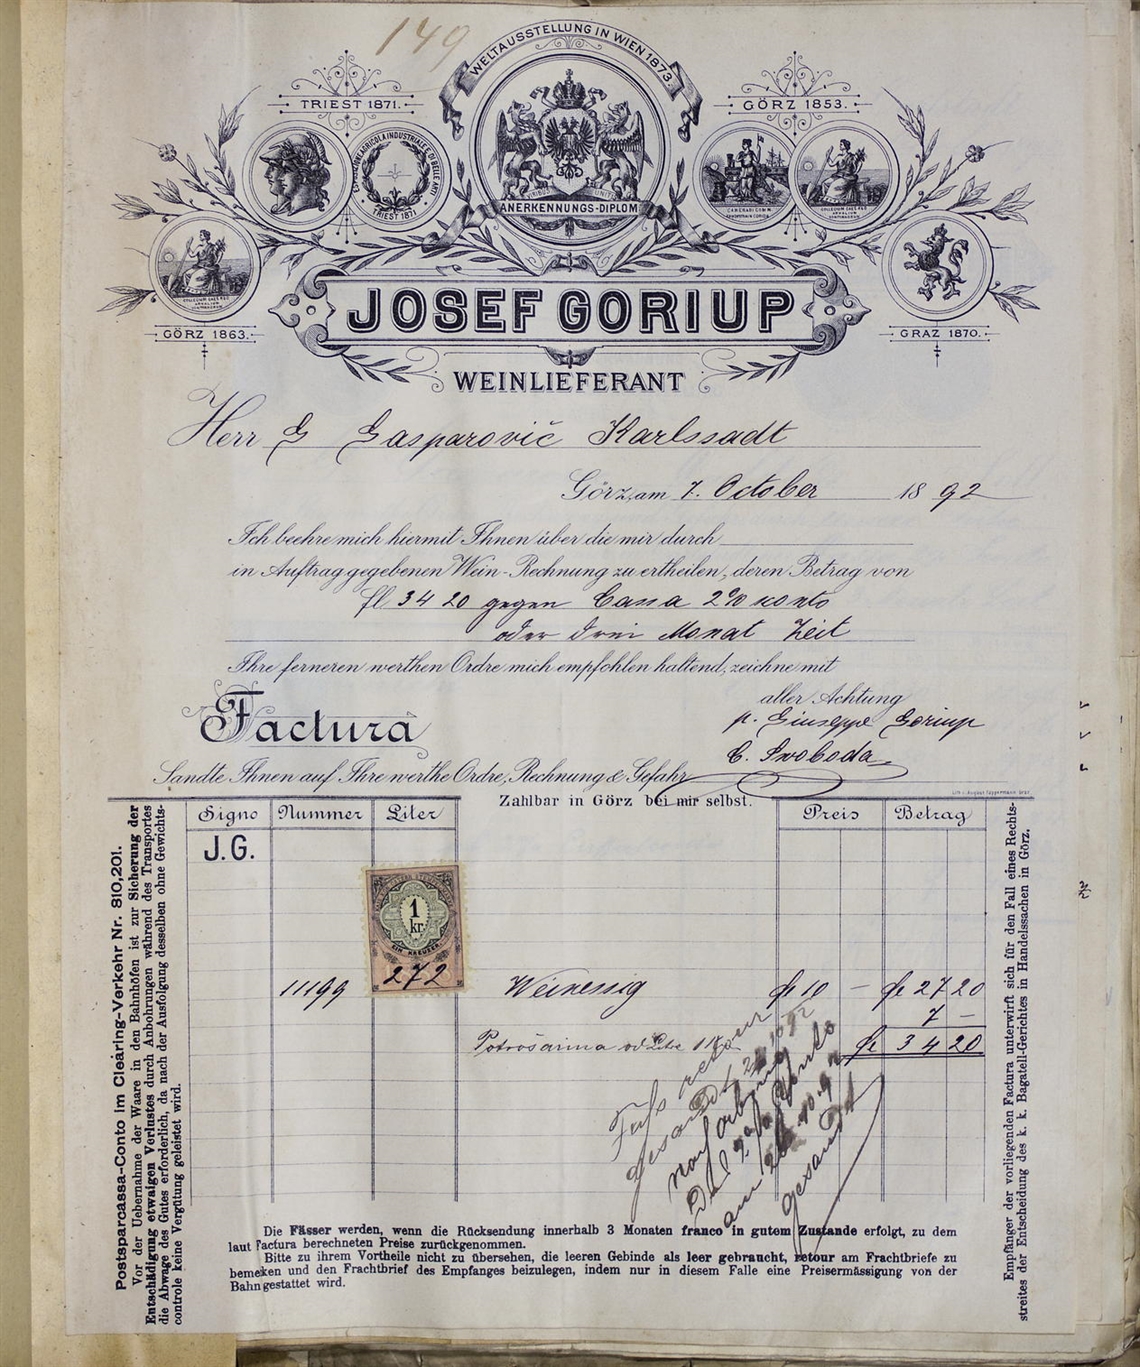 149
WELTAUSSTELLUNG IN WIEN 1873.
TRIEST 1871.
GÖRZ 1853.
ESPOSIZIONE AGRICOLA INDUSTRIALE E DI BELLE ARTI
TRIEST 1871
ANERKENNUNGS-DIPLOM
GÖRZ 1863.
GRAZ 1870.
JOSEF GORIUP
WEINLIEFERANT
Herr G Gasparovič Karlssadt
Görz, am 7. October 1892
Ich beehre mich hiermit Ihnen über die mir durch
in Auftrag gegebenen Wein-Rechnung zu ertheilen, deren Betrag von
fl 34 20 gegen Cassa 2% konto
oder drei Monat Zeit
Ihre ferneren werthen Ordre mich empfohlen haltend, zeichne mit
aller Achtung
p. Giuseppe Goriup
C. Svoboda
Factura
Sandte Ihnen auf Ihre werthe Ordre, Rechnung & Gefahr
Zahlbar in Görz bei mir selbst.
Signo Nummer Liter Preis Betrag
J.G.
1 kr.
EIN KREUZER
11199 272 Weinessig fl 10 – fl 27 20
7 –
Potrošarina od Litre fl 34 20
Fass retour
gesandt
am
gesandt
Postsparcassa-Conto im Clearing-Verkehr Nr. 810,201.
Vor der Uebernahme der Waare in den Bahnhöfen ist zur Sicherung der
Entschädigung etwaigen Verlustes durch Anbohrungen während des Transportes
die Abwage des Gutes erforderlich, da nach der Ausfolgung desselben ohne Gewichts-
controle keine Vergütung geleistet wird.
Empfänger der vorliegenden Factura unterwirft sich für den Fall eines Rechts-
streites der Entscheidung des k. k. Bagatell-Gerichtes in Handelssachen in Görz.
Die Fässer werden, wenn die Rücksendung innerhalb 3 Monaten franco in gutem Zustande erfolgt, zu dem
laut Factura berechneten Preise zurückgenommen.
Bitte zu ihrem Vortheile nicht zu übersehen, die leeren Gebinde als leer gebraucht, retour am Frachtbriefe zu
bemerken und den Frachtbrief des Empfanges beizulegen, indem nur in diesem Falle eine Preisermässigung von der
Bahn gestattet wird.